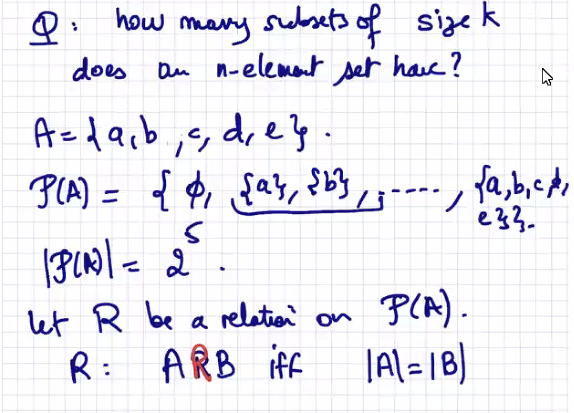 Q: how many subsets of size k
does an n-element set have?
A = {a, b, c, d, e}.
P(A) = { ϕ, {a}, {b}, ....., {a, b, c, d,
e}}.
|P(A)| = 2⁵.
let R be a relation on P(A).
R: A R B iff |A| = |B|